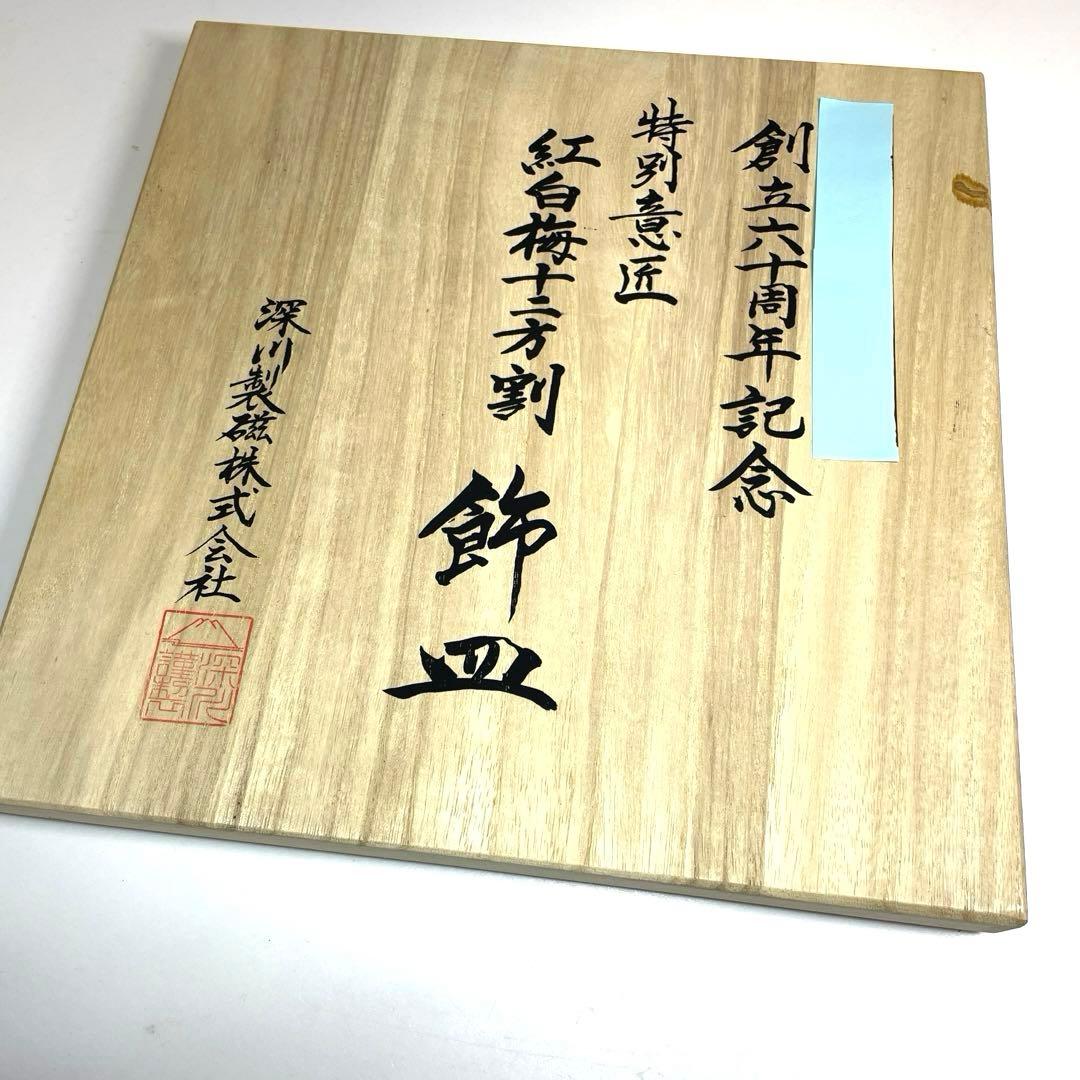 創立六十周年記念
特別意匠
紅白梅十二方割
飾皿
深川製磁株式会社
深川
謹製